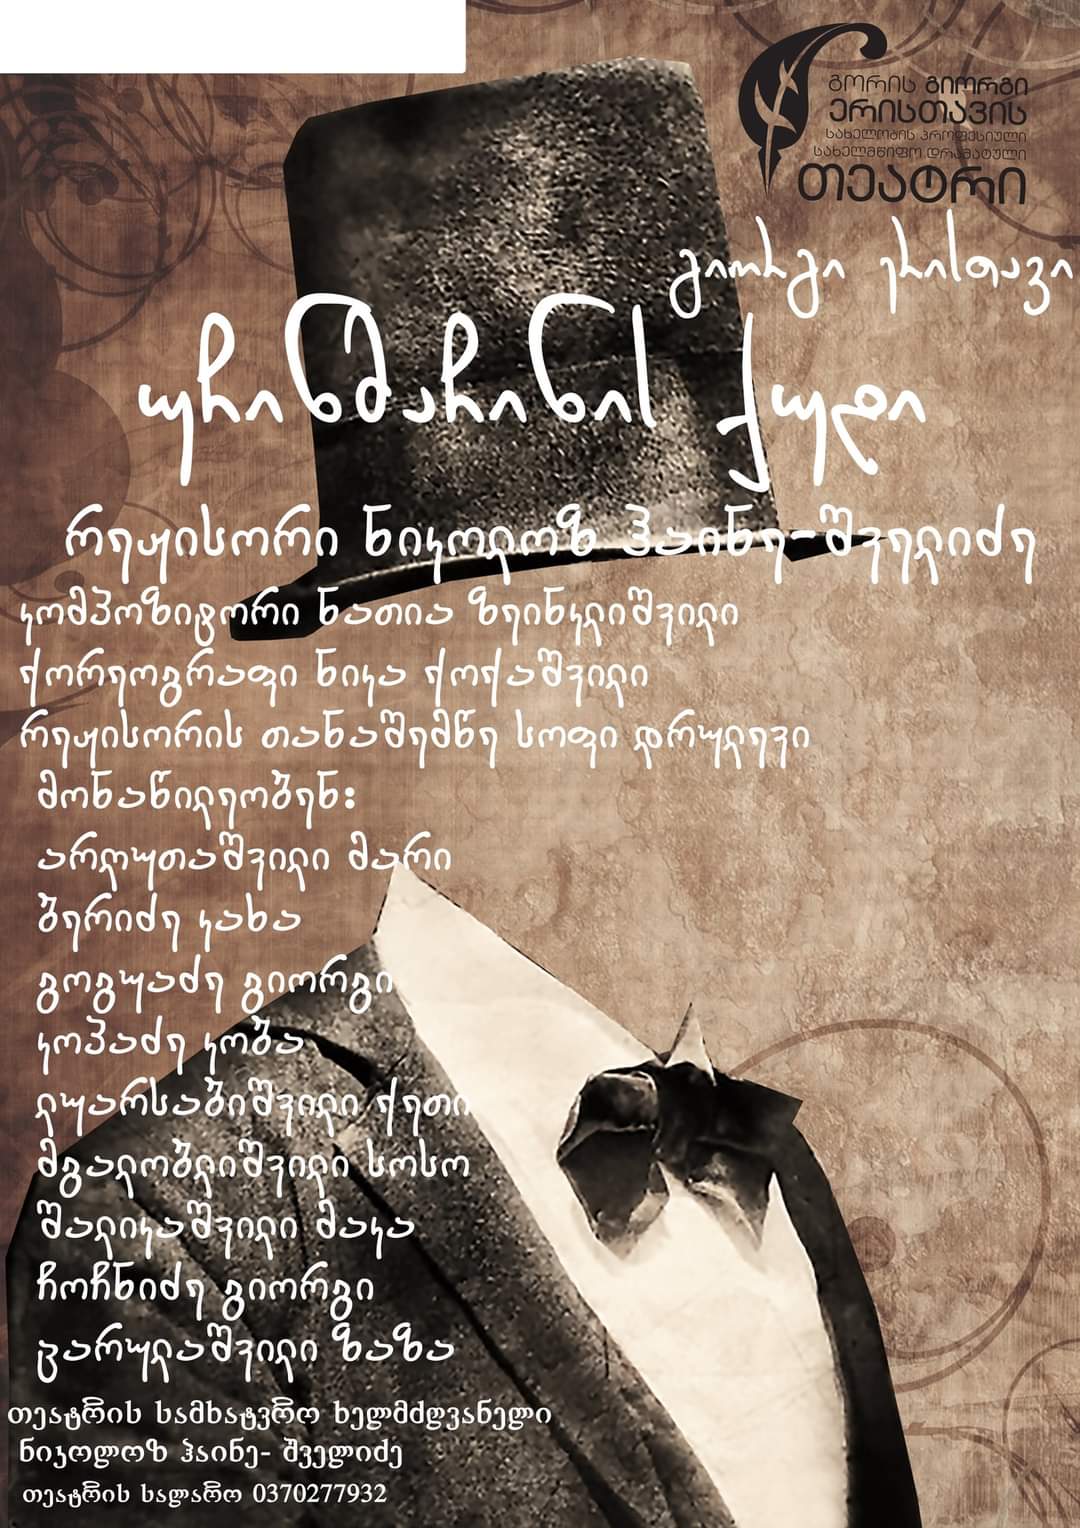 გორის გიორგი
ერისთავის
სახელობის პროფესიული
სახელმწიფო დრამატული
თეატრი
გიორგი ერისთავი
უჩინმაჩინის ქუდი
რეჟისორი ნიკოლოზ ჰაინე-შველიძე
კომპოზიტორი ნათია ზეინკლიშვილი
ქორეოგრაფი ნიკა ქოქაშვილი
რეჟისორის თანაშემწე სოფი დრულევი
მონაწილეობენ:
არღუთაშვილი მარი
ბერიძე კახა
გოგუაძე გიორგი
კოპაძე კობა
ლუარსაბიშვილი ქეთი
მგალობლიშვილი სოსო
შალიკაშვილი მაკა
ჩოჩნიძე გიორგი
ცარულაშვილი ზაზა
თეატრის სამხატვრო ხელმძღვანელი
ნიკოლოზ ჰაინე- შველიძე
თეატრის სალარო 0370277932